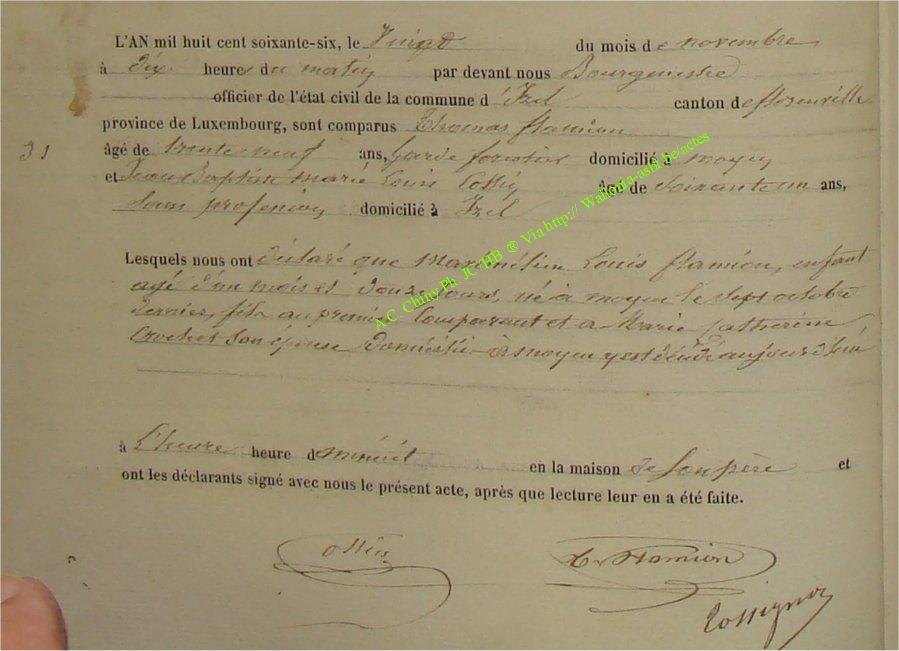 L'AN mil huit cent soixante-six, le Vingt du mois de novembre
à dix heures du matin par devant nous Bourgmestre
officier de l'état civil de la commune d'Izel canton de florenville
province de Luxembourg, sont comparus Thomas hamion
31
âgé de trente neuf ans, Garde forestier domicilié à moyen
et Jean Baptiste Marie Louis âgé de soixante un ans,
Sans profession domicilié à Izel
Lesquels nous ont déclaré que Louis hamion, enfant
agé d'un mois et Douze jours, né à moyen le sept octobre
dernier, fils au premier Comparant et a Marie Catherine
Crochet Son épouse Domiciliée à moyen y est décédé aujourd'hui
à L'heure heure de minuit en la maison de Son père et
ont les déclarants signé avec nous le présent acte, après que lecture leur en a été faite.
hamion
Rossignon
A.C. Chiny Ph. JC-HB ® Via http:// Wallonia-asbl.be/actes